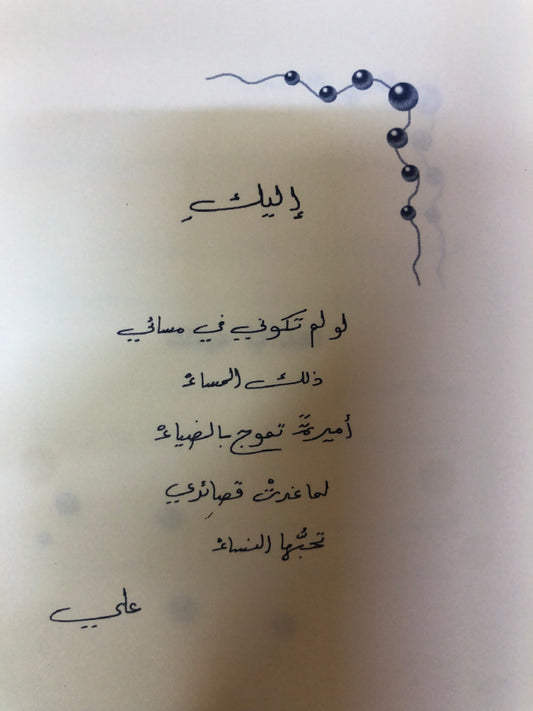 إليكِ
لو لم تكوني في مسائي
ذلك المساءْ
أميرةً تموج بالضياءْ
لما غدتْ قصائدي
تحبُّها النساءْ
علي